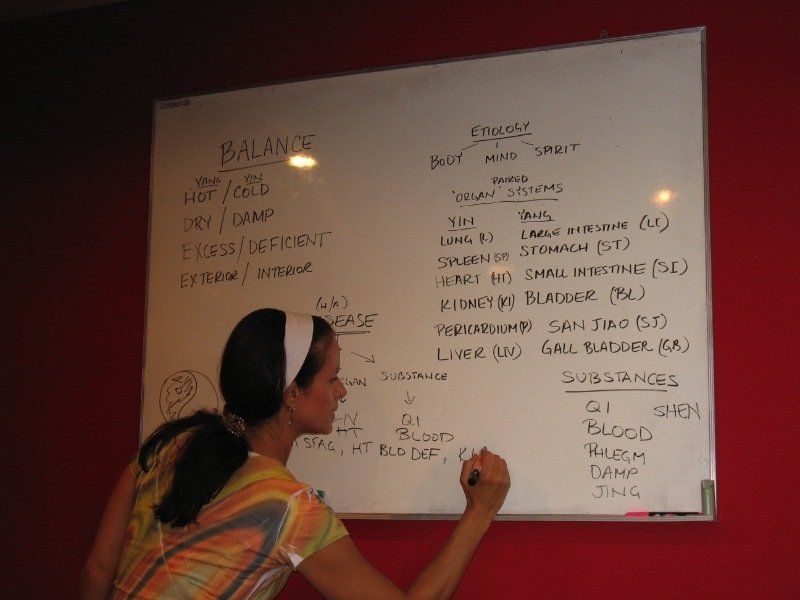 BALANCE
YANG YIN
HOT / COLD
DRY / DAMP
EXCESS / DEFICIENT
EXTERIOR / INTERIOR
ETIOLOGY
BODY MIND SPIRIT
PAIRED
"ORGAN" SYSTEMS
YIN YANG
LUNG (L) LARGE INTESTINE (LI)
SPLEEN (SP) STOMACH (ST)
HEART (HT) SMALL INTESTINE (SI)
KIDNEY (KI) BLADDER (BL)
PERICARDIUM (P) SAN JIAO (SJ)
LIVER (LIV) GALL BLADDER (GB)
(H/A)
SEASE
SUBSTANCE
QI
HT BLOOD
STAG, HT BLD DEF, K
SUBSTANCES
QI SHEN
BLOOD
PHLEGM
DAMP
JING